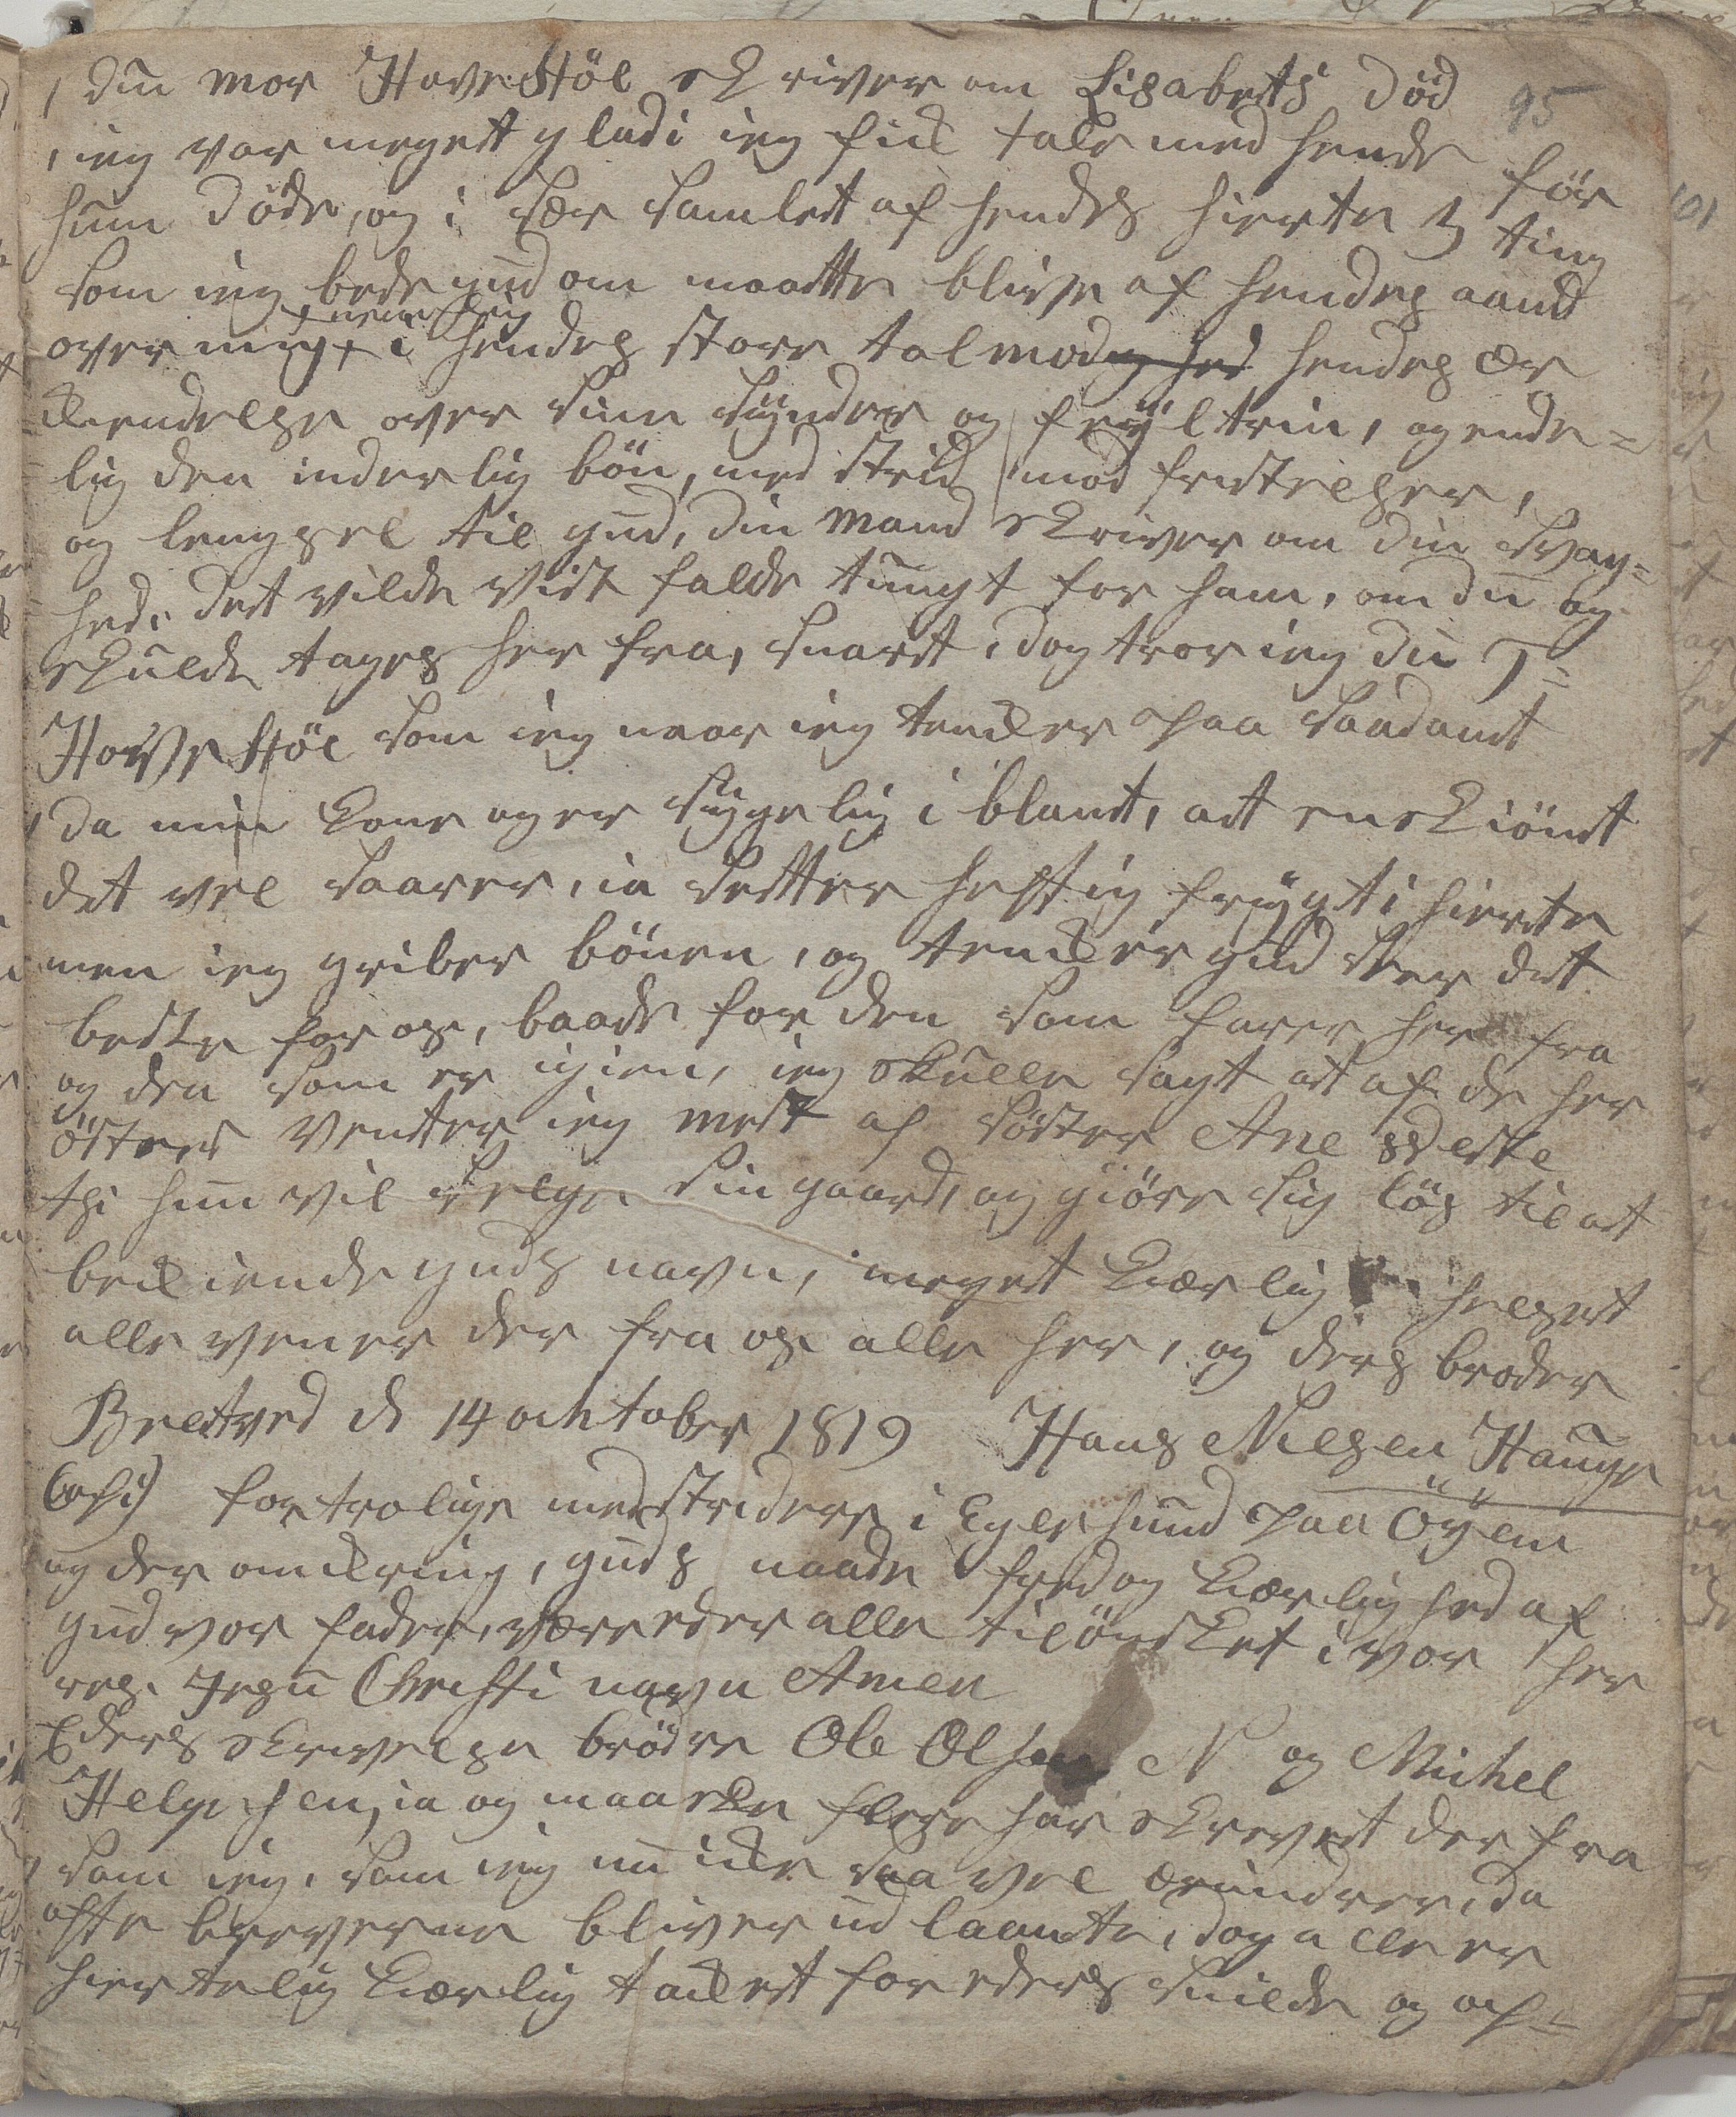 , din mor HoveStöl skriver om Lisabeths Död 95
, ieg var meget glad i ieg fick tale med hende för
hun döde, og i sær samlet af hendes hierte 3 ting
som ieg bede gud om maatte blive af hendes aand
over mig, + i hendes store talmodighed hendes ær
+ nemlig
kiendelse over sine synder og feÿltrin, og ende=
lig den inderlig bön, med strid mod fristelser,
og lengsel til gud, din mand skriver om din svag=
hed, det vilde vist falde tungt for ham, om du og
skulde tages her fra, snart, dog tror ieg du T=
HovEStöl som ieg naar ieg tencker paa saadant
, da min kone og er sygelig i blant, at enskiönt
det vel saarer, ia setter heftig frÿgt i hierte
men ieg griber bönen, og tencker gud seer det
beste for os, baade for den som farer her fra
og den som er igien, ieg skulle sagt at af de her
östen venter ieg mest af söster Ane
thi hun vil selge sin gaard, og giöre sig lös til at
beckiende guds navn, meget kærlig helset
alle vener der fra os alle her, og ders broder
Bredtved d 14 ochtober 1819 Hans Nielsen Hauge
fortrolige medstridere i Egersund paa Öÿen
og der omckring, guds naade fred og kærlighed af
gud vor fader, være eder alle tilönsket i vor her
res Jesu Christi navn Amen
Eders skrivelse brödre Ole Olsen N og Michel
Helgesen, ia og maaske flere har skrevet der fra
, som ieg, som ieg nu icke saa vel erindrer, da
ofte breverne bliver ud laante, dog alle er
hiertelig kærlig tacket for eders snilde og op=